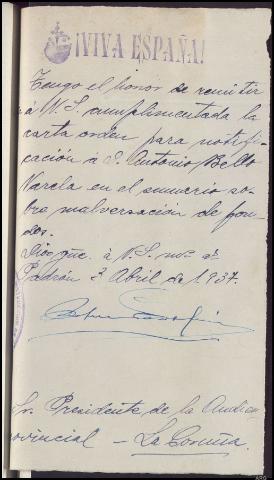 ¡VIVA ESPAÑA!
Tengo el honor de remitir
á V.S. cumplimentada la
carta orden para notifi-
cación á D. Antonio Bello
Varela en el sumario so-
bre malversación de fon-
dos.
Dios güe. á V.S. ms. as.
Padrón 3 Abril de 1937.
Sr. Presidente de la Audien
rovincial - La Coruña.